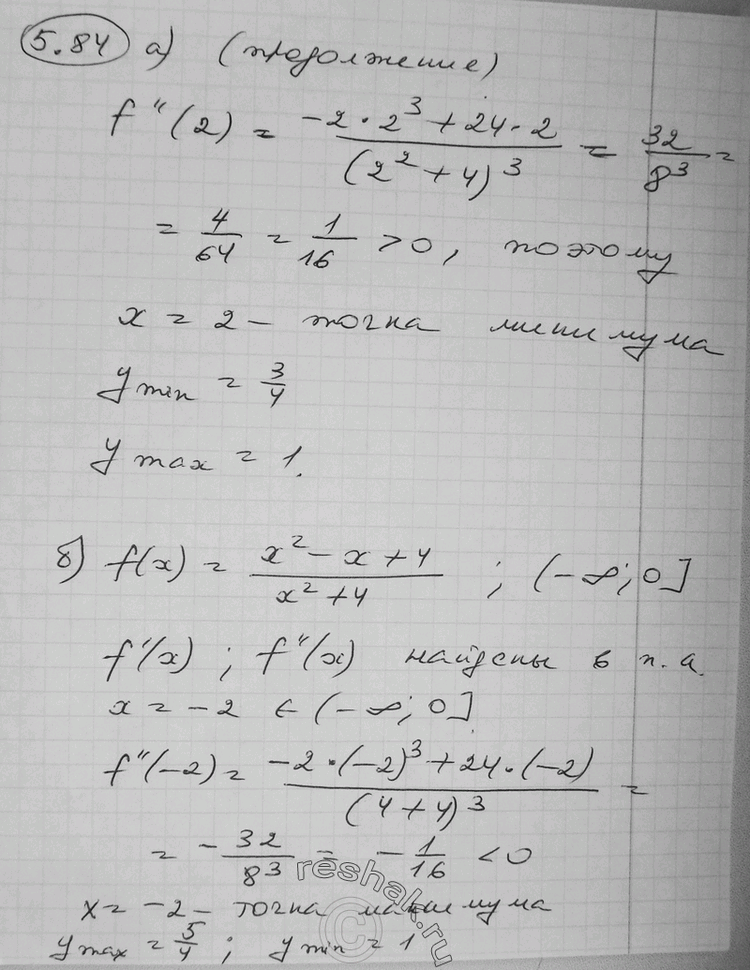 5.84 а) (продолжение)
f"(2) = (-2·2³+24·2)/(2²+4)³ = 32/8³ =
= 4/64 = 1/16 >0, поэтому
x = 2 - точка минимума
y min = 3/4
y max = 1.
б) f(x) = (x²-x+4)/(x²+4) ; (-∞;0]
f'(x) ; f"(x) найдены в п.а.
x = -2 ∈ (-∞;0]
f"(-2) = (-2·(-2)³+24·(-2))/(4+4)³ =
= -32/8³ = -1/16 <0
x = -2 - точка максимума
y max = 5/4 ; y min = 1
reshak.ru
©